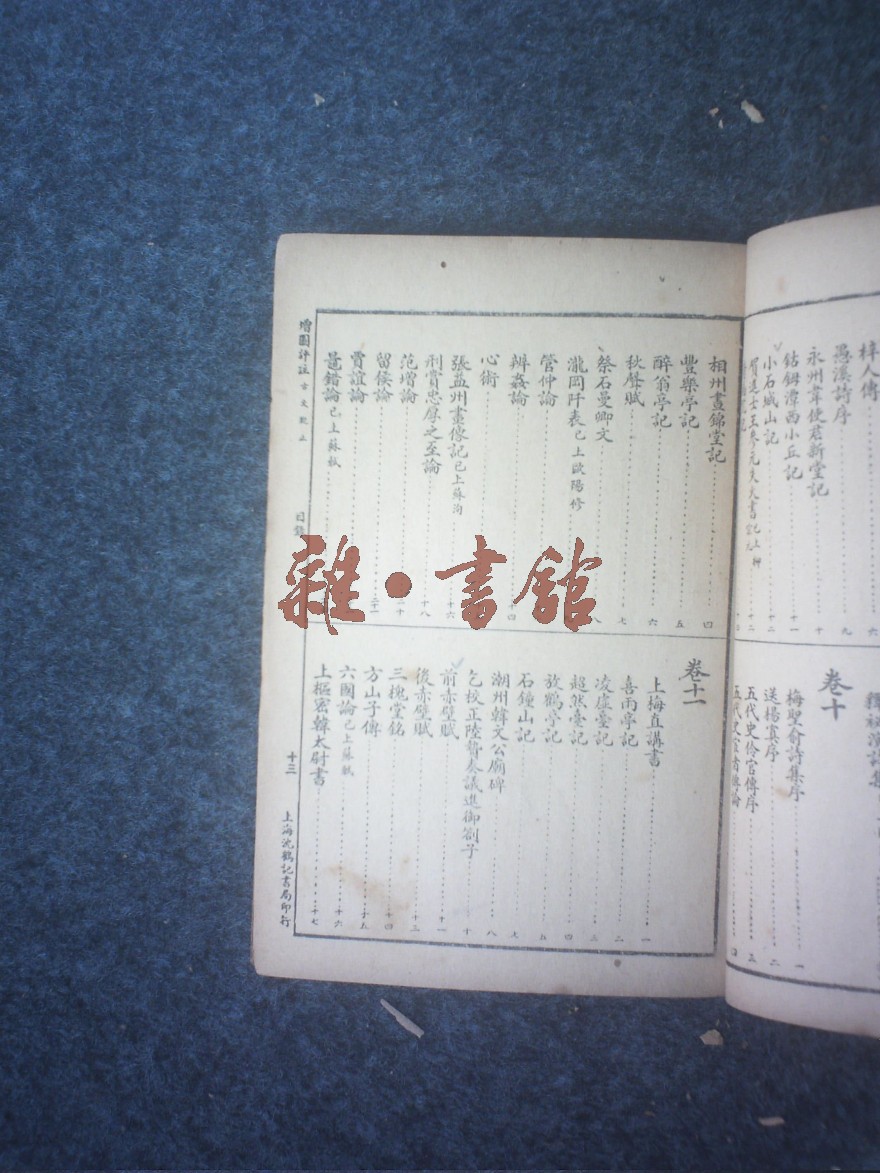 梓人傳
愚溪詩序
永州韋使君新堂記
鈷鉧潭西小丘記
小石城山記
賀進士王參元失火書
梅聖俞詩集序
卷十
送楊寘序
五代史伶官傳序
五代史宦者傳論
相州晝錦堂記 四
豐樂亭記 五
醉翁亭記 六
秋聲賦 七
祭石曼卿文 八
瀧岡阡表 已上歐陽修
管仲論
辨姦論 十四
心術
張益州畫像記 已上蘇洵 十六
刑賞忠厚之至論 十八
范增論 二十
留侯論 二十一
賈誼論
鼂錯論 已上蘇軾
卷十一
上梅直講書 一
喜雨亭記 二
凌虛臺記 三
超然臺記 四
放鶴亭記 五
石鐘山記 七
潮州韓文公廟碑 八
乞校正陸贄奏議進御劄子 十
前赤壁賦 十一
後赤壁賦 十三
三槐堂銘 十四
方山子傳 十五
六國論 已上蘇軾 十六
上樞密韓太尉書 十七
增圖評註古文觀止
目錄
十三
上海沈鶴記書局印行
雜·書館